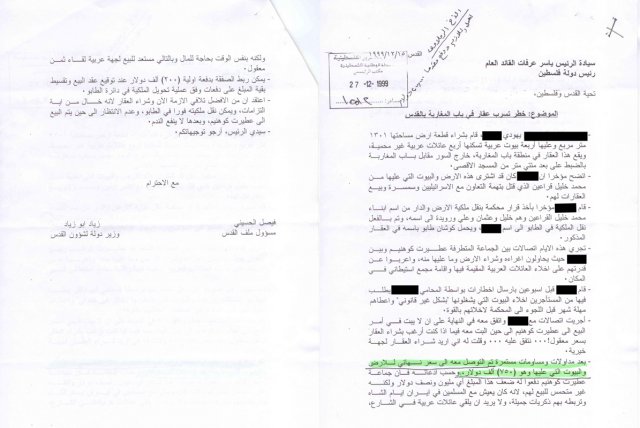 القدس ١٩٩٩/١٢/٢٥
27-12-1999
سيادة الرئيس ياسر عرفات القائد العام
رئيس دولة فلسطين
تحية القدس وفلسطين،
الموضوع: خطر تسرب عقار في باب المغاربة بالقدس
- يهودي قام بشراء قطعة ارض مساحتها ١٣٠١
متر مربع وعليها أربعة بيوت عربية تسكنها أربع عائلات عربية غير محمية،
ويقع هذا العقار في منطقة باب المغاربة، خارج السور مقابل باب المغاربة
بالضبط على بعد مئتي متر من المسجد الاقصى.
- اتضح مؤخرا ان كان قد اشترى هذه الارض والبيوت التي عليها من
محمد خليل قراعين الذي قتل بتهمة التعاون مع الاسرائيليين وسمسرة وبيع
العقارات لهم.
- قام مؤخرا بأخذ قرار محكمة بنقل ملكية الارض والدار من اسم ابناء
محمد خليل القراعين وهم خليل وعثمان وعلي ورويدة الى اسمه، وتم بالفعل
نقل الملكية في الطابو الى اسم ويحمل كوشان طابو باسمه في العقار
المذكور.
- تجري هذه الايام اتصالات بين الجماعة المتطرفة عطيرت كوهنيم وبين
حيث يحاولون اغراءه وشراء الارض وما عليها منه، واعربوا عن
قدرتهم على اخلاء العائلات العربية المقيمة فيها واقامة مجمع استيطاني في
المكان.
- قام قبل اسبوعين بارسال اخطارات بواسطة المحامي يطلب
فيها من المستأجرين اخلاء البيوت التي يشغلونها "بشكل غير قانوني" واعطاهم
مهلة شهر قبل اللجوء الى المحكمة لاخلائهم بالقوة.
- اجريت اتصالات مع واتفق معه في النهاية على ان لا يبت في أمر
البيع الى عطيرت كوهنيم الى حين البت معه فيما اذا كنت أرغب بشراء العقار
بسعر معقول!... نتفق عليه ... وقلت له اني اريد شراء العقار لجهة
خيرية.
- بعد مداولات ومساومات مستمرة تم التوصل معه الى سعر نهائي للارض
والبيوت التي عليها وهو (٧٥٠) ألف دولار، وحسب ادعائه فان جماعة
عطيرت كوهنيم دفعوا له ضعف هذا المبلغ أي مليون ونصف دولار ولكنه
غير متحمس للبيع لهم، لانه كان يعيش مع المسلمين في ايران ايام الشاه
وتربطه بهم ذكريات جميلة، ولا يريد ان يلقي عائلات عربية في الشارع،
ولكنه بنفس الوقت بحاجة للمال وبالتالي مستعد للبيع لجهة عربية لقاء ثمن
معقول.
- يمكن ربط الصفقة بدفعة اولية (٢٠٠) الف دولار عند توقيع عقد البيع وتقسيط
بقية المبلغ على دفعات وفق عملية تحويل الملكية في دائرة الطابو.
- اعتقد ان من الافضل تلافي الازمة الآن وشراء العقار لانه خال من اية
التزامات، ويمكن نقل ملكيته فورا في الطابو، وعدم الانتظار الى حين يتم البيع
الى عطيرت كوهنيم، وبعدها لا ينفع الندم.
- سيدي الرئيس، أرجو توجيهاتكم.
مع الاحترام
فيصل الحسيني
مسؤول ملف القدس
زياد ابو زياد
وزير دولة لشؤون القدس